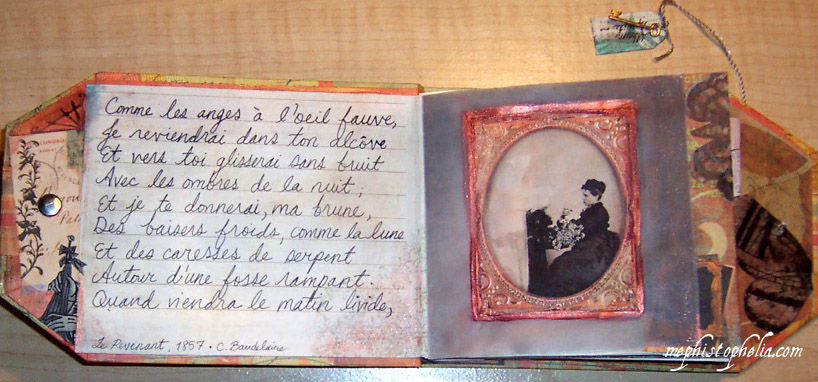 Comme les anges à l'oeil fauve,
Je reviendrai dans ton alcôve
Et vers toi glisserai sans bruit
Avec les ombres de la nuit;
Et je te donnerai, ma brune,
Des baisers froids, comme la lune
Et des caresses de serpent
Autour d'une fosse rampant.
Quand viendra le matin livide,
Le Revenant, 1857 • C. Baudelaire
mephistophelia.com